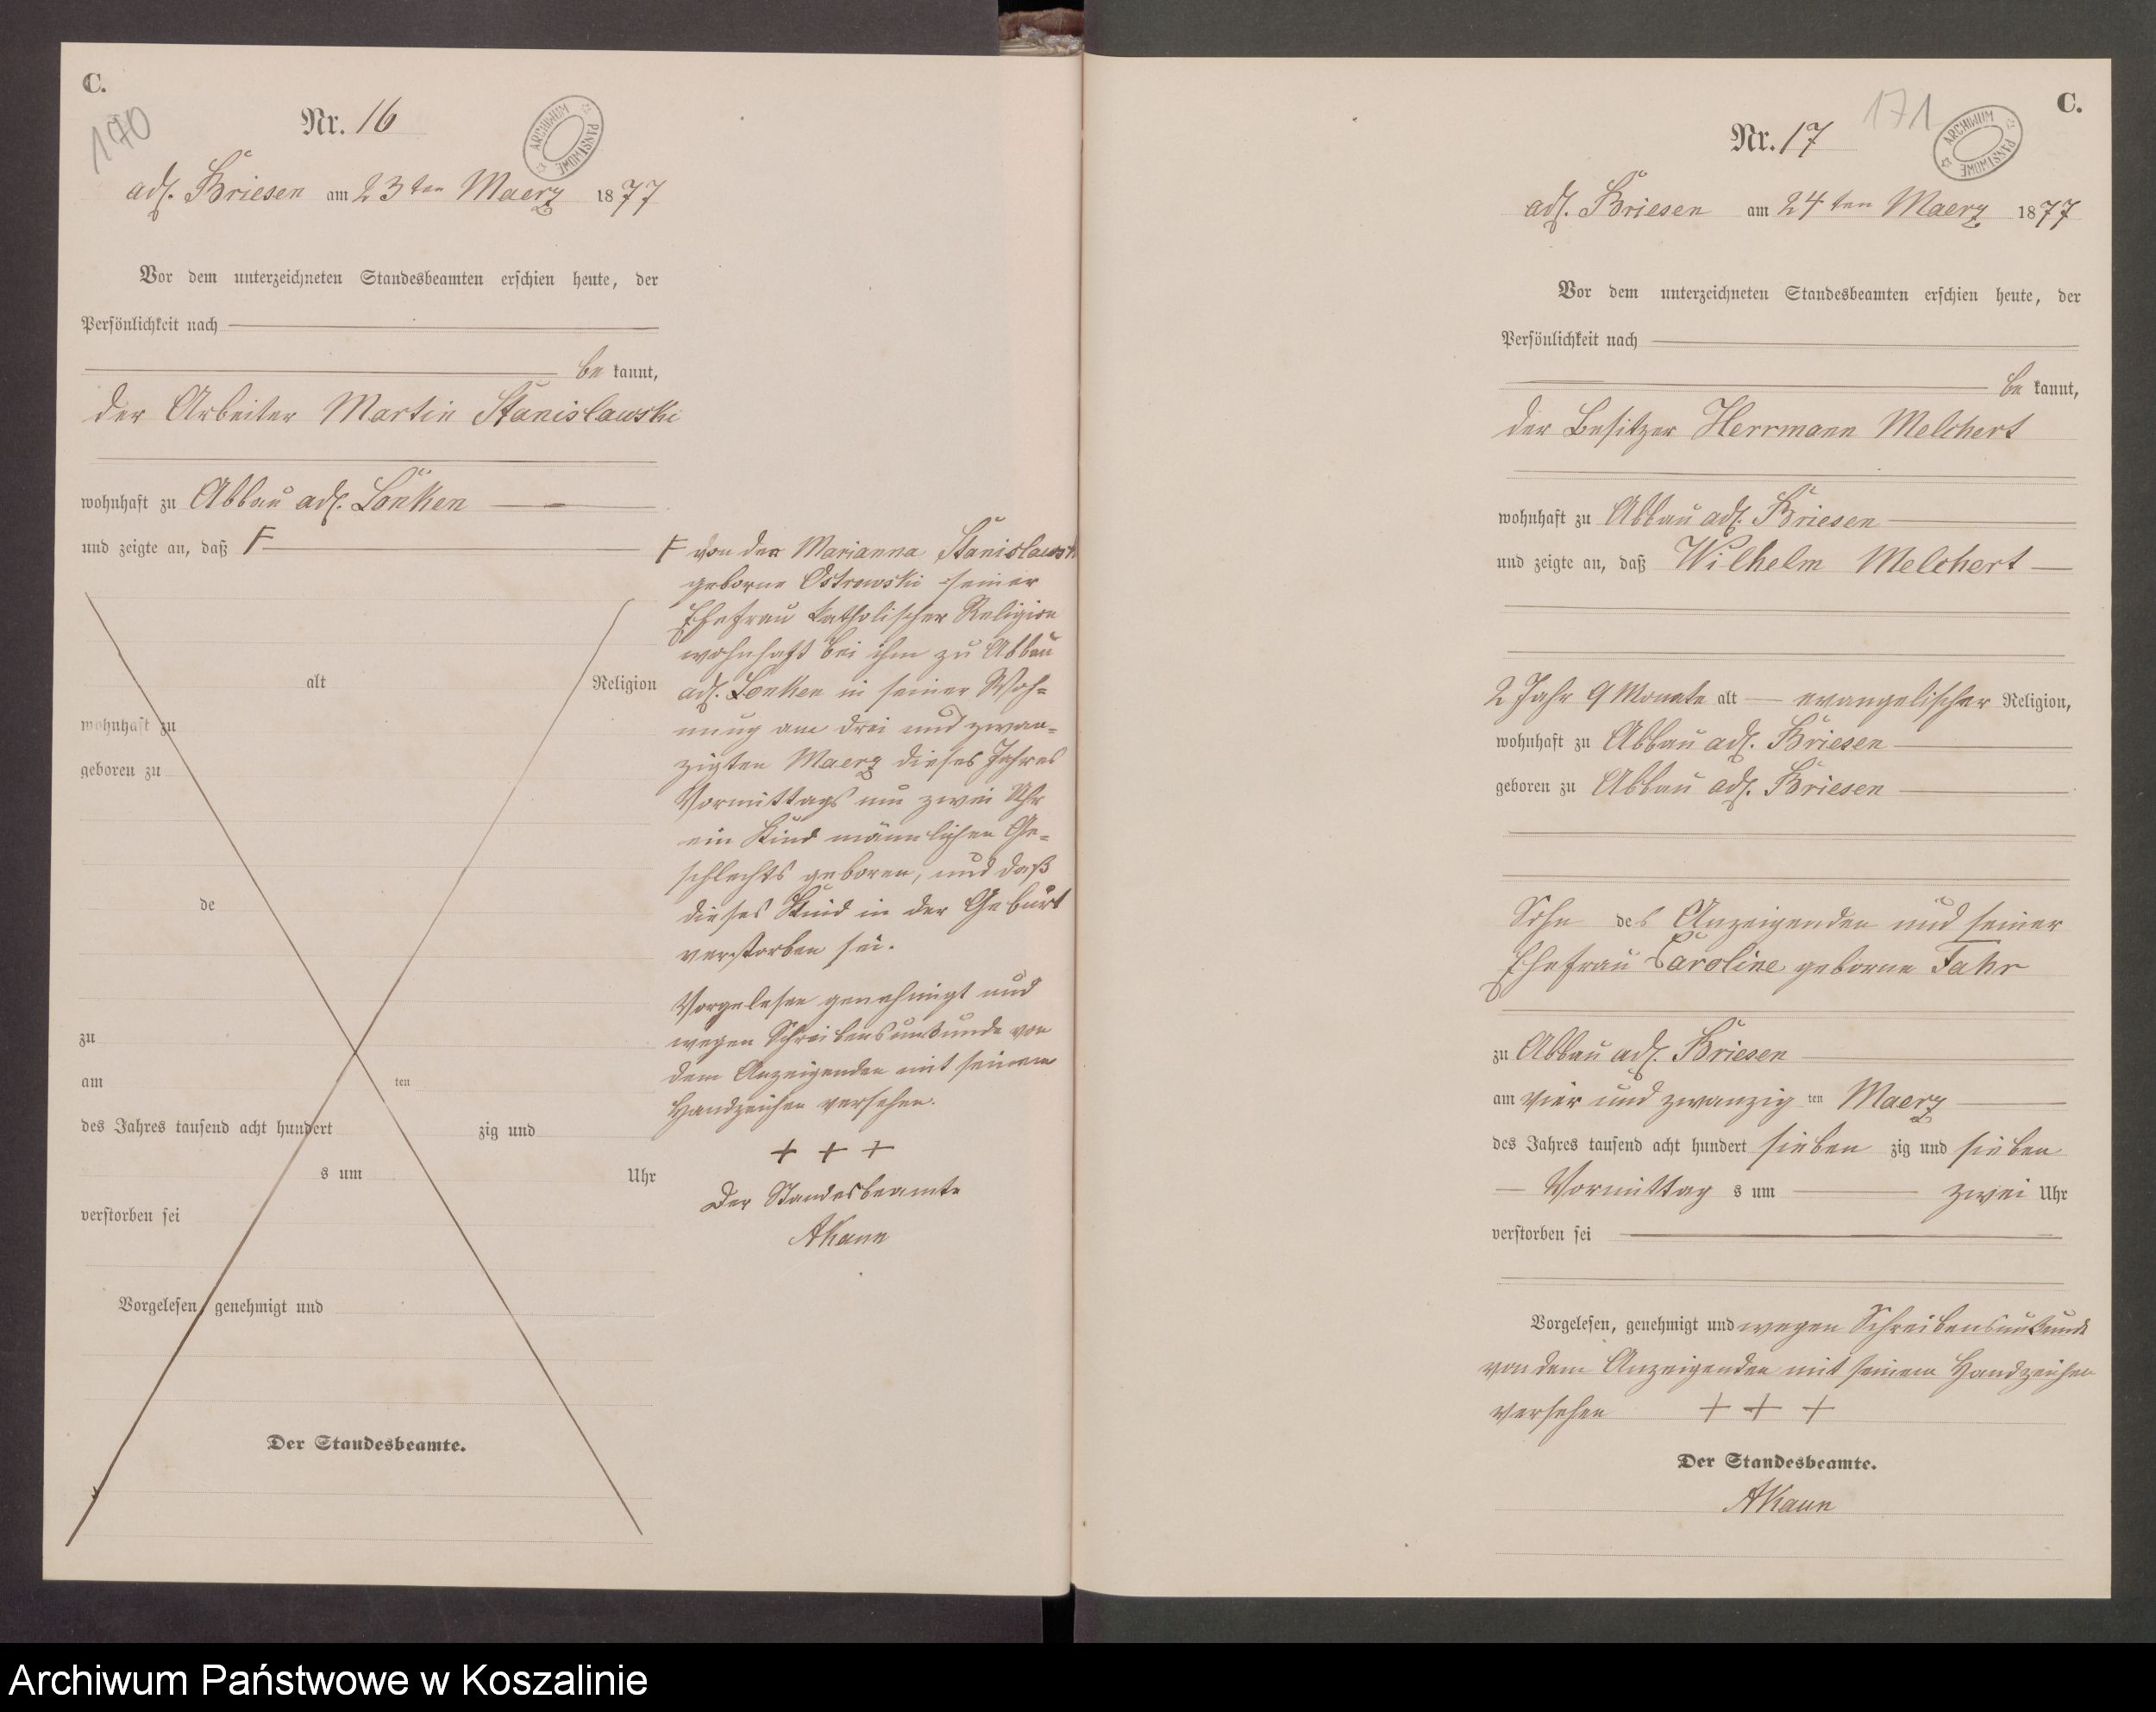 C.
170
Nr. 16
ARCHIWUM PAŃSTWOWE
adl. Briesen am 23ten Maerz 1877
Vor dem unterzeichneten Standesbeamten erschien heute, der
Persönlichkeit nach
be kannt,
der Arbeiter Martin Stanislawski
wohnhaft zu Abbau adl. Lonken
und zeigte an, daß F
alt Religion
wohnhaft zu
geboren zu
de
zu
am ten
des Jahres tausend acht hundert zig und
s um Uhr
verstorben sei
Vorgelesen, genehmigt und
Der Standesbeamte.
F von der Marianna Stanislawsk
geborne Ostrowski seiner
Ehefrau katholischer Religion
wohnhaft bei ihm zu Abbau
adl. Lonken in seiner Woh=
nung am drei und zwan=
zigten Maerz dieses Jahres
Vormittags um zwei Uhr
ein Kind männlichen Ge=
schlechts geboren, und daß
dieses Kind in der Geburt
verstorben sei.
Vorgelesen genehmigt und
wegen Schreibensunkunde von
dem Anzeigenden mit seinem
Handzeichen versehen.
+ + +
Der Standesbeamte
AKaun
171
C.
Nr. 17
ARCHIWUM PAŃSTWOWE
adl. Briesen am 24ten Maerz 1877
Vor dem unterzeichneten Standesbeamten erschien heute, der
Persönlichkeit nach
be kannt,
der Besitzer Herrmann Melchert
wohnhaft zu Abbau adl. Briesen
und zeigte an, daß Wilhelm Melchert
2 Jahr 9 Monate alt evangelischer Religion,
wohnhaft zu Abbau adl. Briesen
geboren zu Abbau adl. Briesen
Sohn des Anzeigenden und seiner
Ehefrau Caroline geborne Fahr
zu Abbau adl. Briesen
am vier und zwanzig ten Maerz
des Jahres tausend acht hundert sieben zig und sieben
Vormittag s um zwei Uhr
verstorben sei
Vorgelesen, genehmigt und wegen Schreibensunkunde
von dem Anzeigenden mit seinem Handzeichen
versehen + + +
Der Standesbeamte.
AKaun
Archiwum Państwowe w Koszalinie